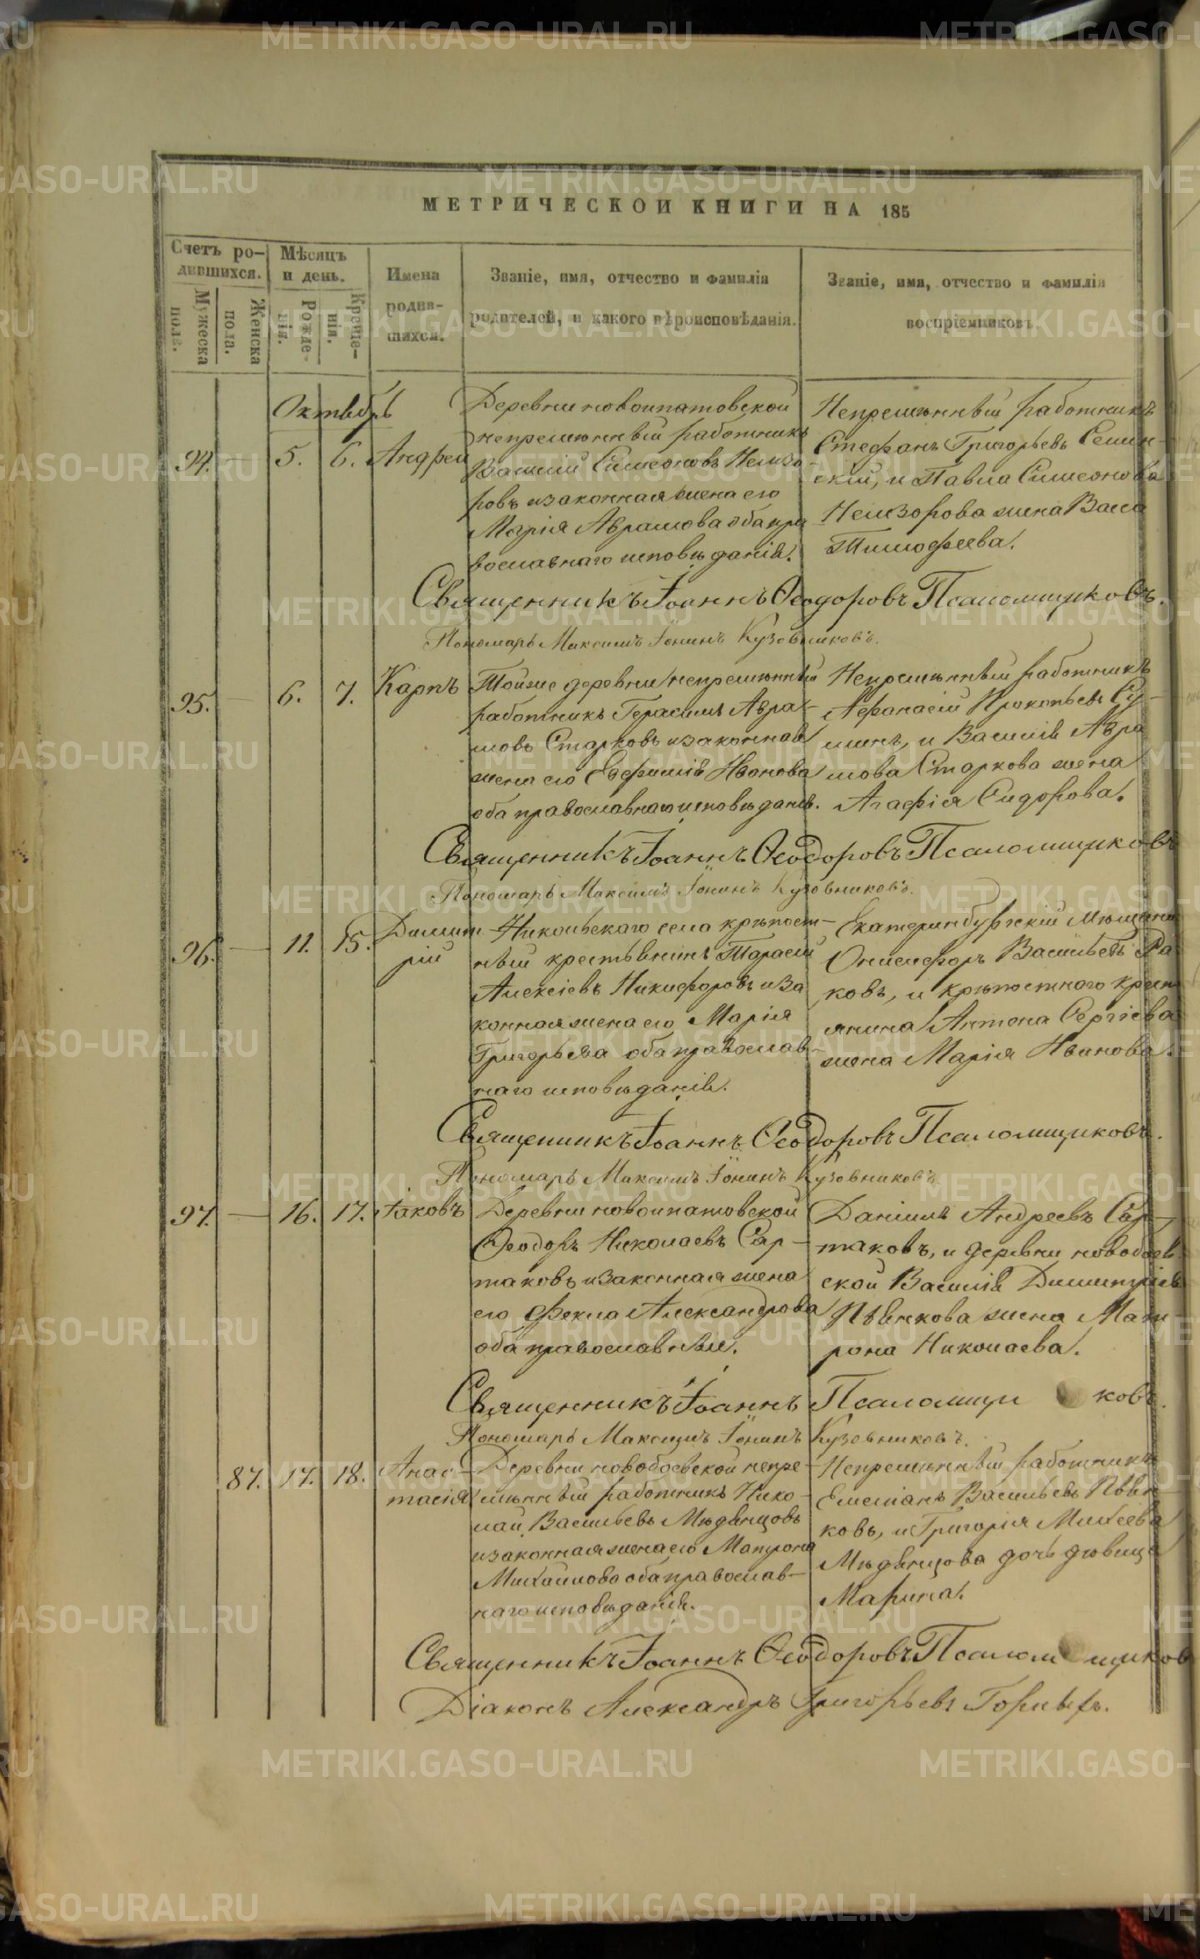 МЕТРИЧЕСКОЙ КНИГИ НА 185
Счетъ ро-
дившихся.
Мужеска
пола.
Женска
пола.
Мѣсяцъ
и день.
Рожде-
нія.
Креще-
нія.
Имена
родив-
шихся.
Званіе, имя, отчество и фамилія
родителей, и какого вѣроисповѣданія.
Званіе, имя, отчество и фамилія
воспріемниковъ.
Октябрь
94. 5. 6. Андрей
Деревни новоипатовской
непремѣнный работникъ
Василій Симеоновъ
ровъ и законная жена его
Марія Аврамова оба пра
вославнаго исповѣданія.
Непремѣнный работникъ
Стефанъ Григорьевъ Семин-
скій, и Павла Симеонова
жена Васса
Тимофеева.
Священникъ Іоаннъ Ѳеодоровъ Псаломщиковъ.
Пономарь Максимъ Іонинъ Кузовниковъ.
95. 6. 7. Карпъ
Тойже деревни непремѣнный
работникъ Герасимъ Авра-
мовъ Старковъ и законная
жена его Евфимія Иванова
оба православнаго исповѣданія.
Непремѣнный работникъ
Афанасій Прокопьевъ Су-
минъ, и Василія Авра
мова Старкова жена
Агафія Сидорова.
Священникъ Іоаннъ Ѳеодоровъ Псаломщиковъ
Пономарь Максимъ Іонинъ Кузовниковъ.
96. 11. 15. Димит
рій
Никольскаго села крѣпост-
ный крестьянинъ Тарасій
Алексіевъ Никифоровъ и за
конная жена его Марія
Григорьева оба православ-
наго исповѣданія.
Екатеринбургскій мѣщанинъ
Онисифоръ Васильевъ Ра
ковъ, и крѣпостнаго крест
янина Антона Сергіева
жена Марія Иванова.
Священникъ Іоаннъ Ѳеодоровъ Псаломщиковъ.
Пономарь Максимъ Іонинъ Кузовниковъ.
97. 16. 17. Іаковъ
Деревни новоипатовской
Ѳеодоръ Николаевъ Сар-
таковъ и законная жена
его Фекла Александрова
оба православные.
Даніилъ Андреевъ Сар-
таковъ, и деревни новобоев
ской Василія Димитріев
Пьянкова жена Мат-
рона Николаева.
Священникъ Іоаннъ Псаломщи ковъ.
Пономарь Максимъ Іонинъ Кузовниковъ.
87. 17. 18. Анас-
тасія
Деревни новобоевской непре-
мѣнный работникъ Нико-
лай Васильевъ Мѣдянцовъ
и законная жена его Матрона
Михаилова оба православ-
наго исповѣданія.
Непремѣнный работникъ
Емеліанъ Васильевъ Пьян-
ковъ, и Григорія Михеева
Мѣдянцова дочь дѣвица
Марина.
Священникъ Іоаннъ Ѳеодоровъ Псалом щиков
Діаконъ Александръ Григорьевъ Горныхъ.
METRIKI.GASO-URAL.RU